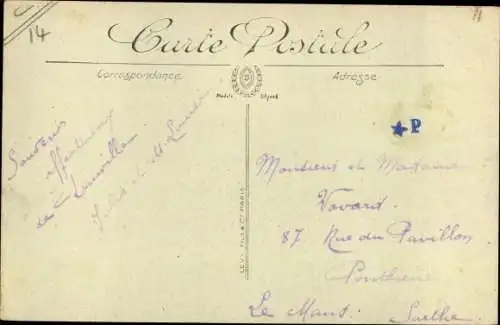 14
Carte Postale
Correspondance
Adresse
Modèle Déposé
P
Souvenir
affectueux
de
LEVY FILS & Cie PARIS
Monsieur et Madame
Vovard.
87 Rue du Pavillon
Le Mans. Sarthe